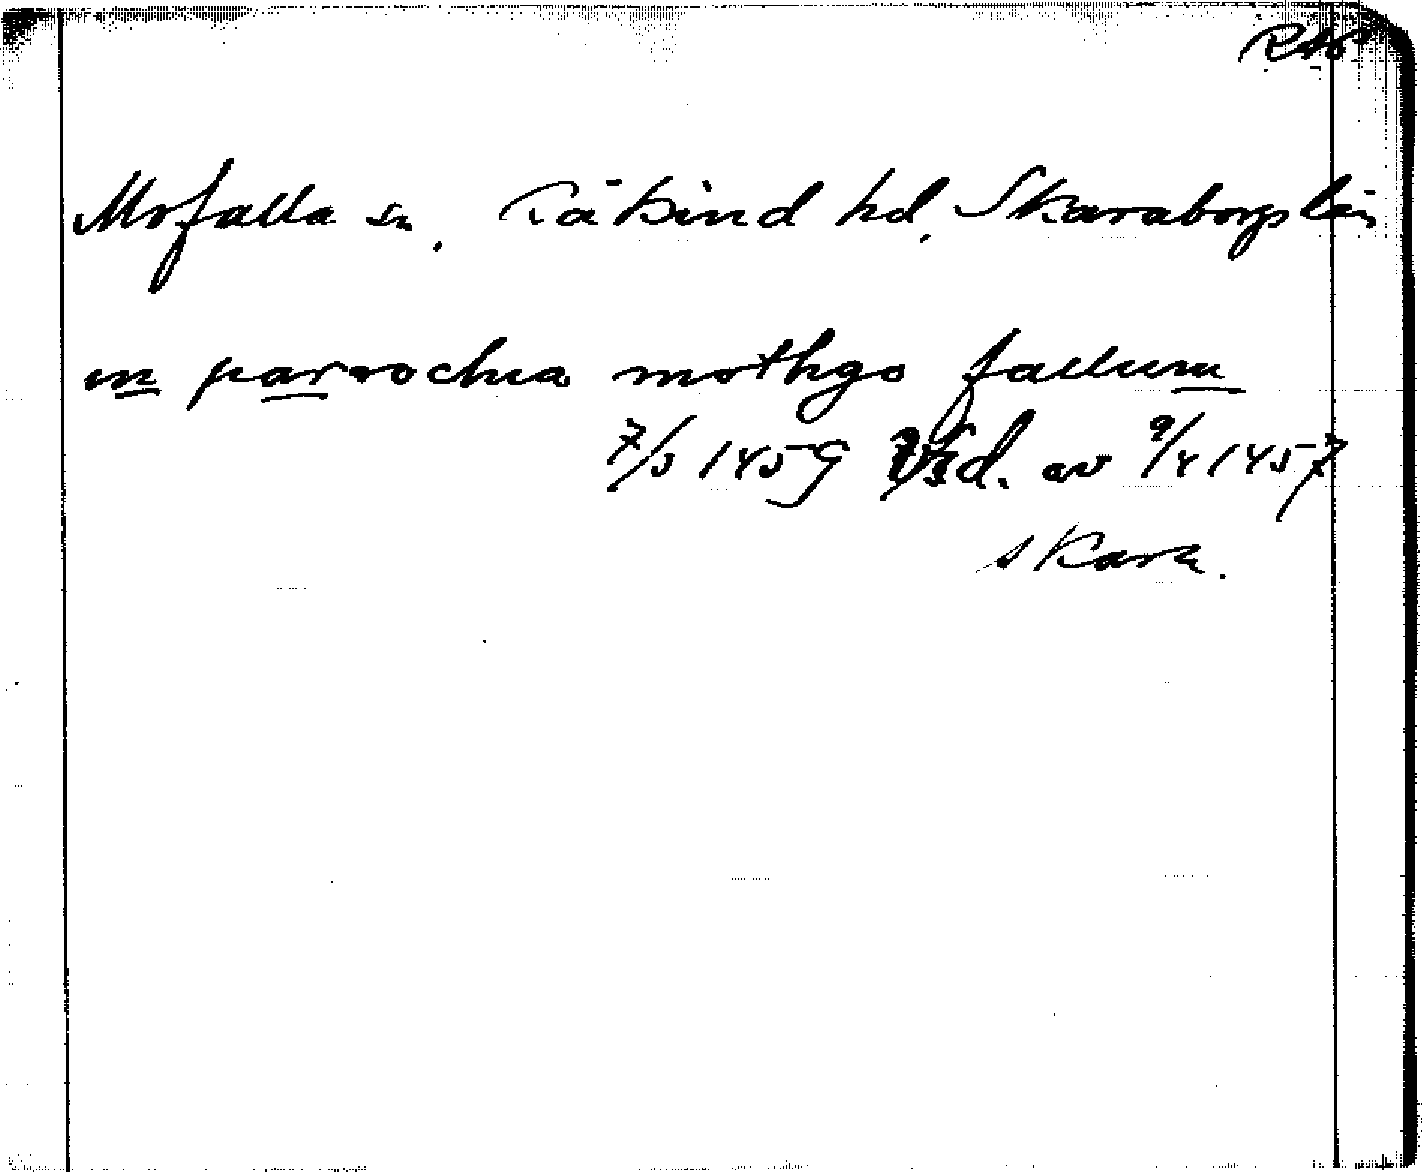 RAP
Mofalla sn. Kåkind hd. Skaraborgs län
in parrochia mothgo fallum
7/5 1459 Vid. av 9/4 1457
Skara.